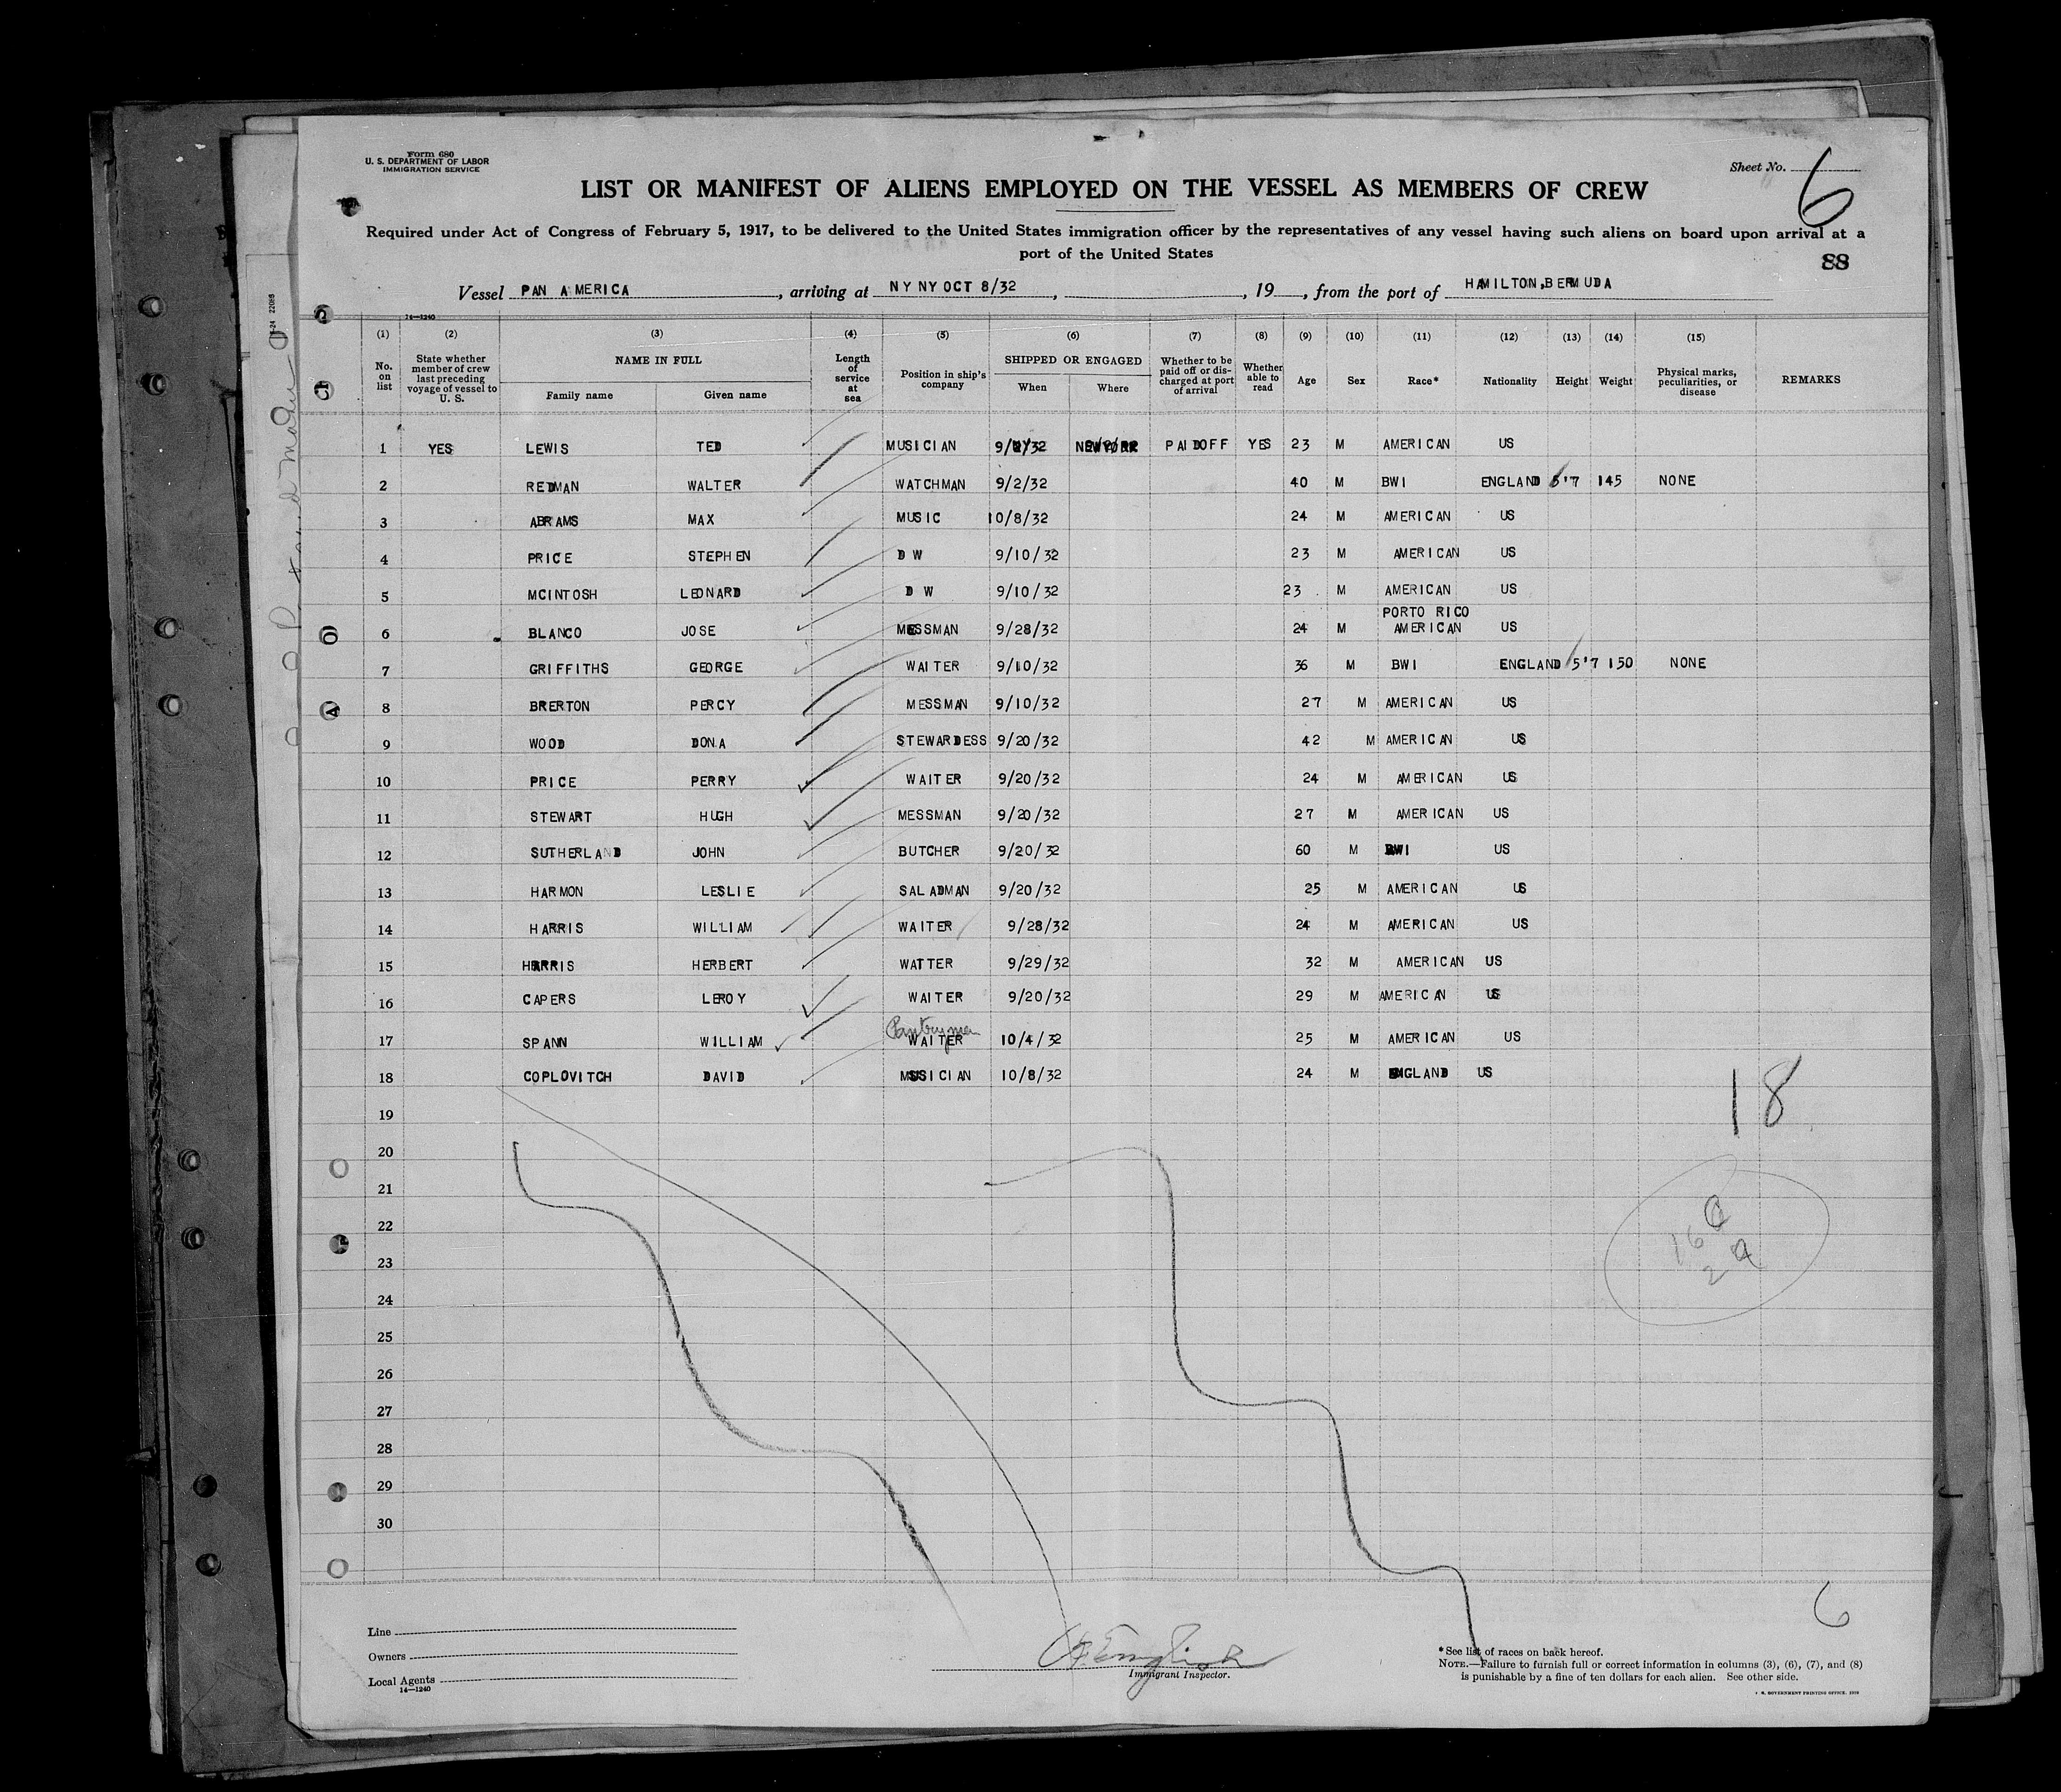 Form 680
U. S. DEPARTMENT OF LABOR
IMMIGRATION SERVICE
Sheet No. 6
LIST OR MANIFEST OF ALIENS EMPLOYED ON THE VESSEL AS MEMBERS OF CREW
Required under Act of Congress of February 5, 1917, to be delivered to the United States immigration officer by the representatives of any vessel having such aliens on board upon arrival at a
port of the United States
88
Vessel PAN AMERICA, arriving at NY NY OCT 8/32, , 19 , from the port of HAMILTON,BERMUDA
14—1240
(1) (2) (3) (4) (5) (6) (7) (8) (9) (10) (11) (12) (13) (14) (15)
No. on list State whether member of crew last preceding voyage of vessel to U. S. NAME IN FULL Family name Given name Length of service at sea Position in ship's company SHIPPED OR ENGAGED When Where Whether to be paid off or discharged at port of arrival Whether able to read Age Sex Race* Nationality Height Weight Physical marks, peculiarities, or disease REMARKS
1 YES LEWIS TED MUSICIAN 9/2/32 NEWYORK PAIDOFF YES 23 M AMERICAN US
2 REDMAN WALTER WATCHMAN 9/2/32 40 M BWI ENGLAND 5'7 145 NONE
3 ABRAMS MAX MUSIC 10/8/32 24 M AMERICAN US
4 PRICE STEPHEN D W 9/10/32 23 M AMERICAN US
5 MCINTOSH LEONARD D W 9/10/32 23 M AMERICAN US
PORTO RICO
6 BLANCO JOSE MESSMAN 9/28/32 24 M AMERICAN US
7 GRIFFITHS GEORGE WAITER 9/10/32 36 M BWI ENGLAND 5'7 150 NONE
8 BRERTON PERCY MESSMAN 9/10/32 27 M AMERICAN US
9 WOOD DONA STEWARDESS 9/20/32 42 M AMERICAN US
10 PRICE PERRY WAITER 9/20/32 24 M AMERICAN US
11 STEWART HUGH MESSMAN 9/20/32 27 M AMERICAN US
12 SUTHERLAND JOHN BUTCHER 9/20/32 60 M BWI US
13 HARMON LESLIE SALADMAN 9/20/32 25 M AMERICAN US
14 HARRIS WILLIAM WAITER 9/28/32 24 M AMERICAN US
15 HARRIS HERBERT WATTER 9/29/32 32 M AMERICAN US
16 CAPERS LEROY WAITER 9/20/32 29 M AMERICAN US
Pantryman
17 SPANN WILLIAM WAITER 10/4/32 25 M AMERICAN US
18 COPLOVITCH DAVID MUSICIAN 10/8/32 24 M ENGLAND US
18
19
20
21
22
23
24
25
26
27
28
29
30
16 C
2 a
6
Line
Owners
Local Agents
14—1240
Immigrant Inspector.
*See list of races on back hereof.
NOTE.—Failure to furnish full or correct information in columns (3), (6), (7), and (8)
is punishable by a fine of ten dollars for each alien. See other side.